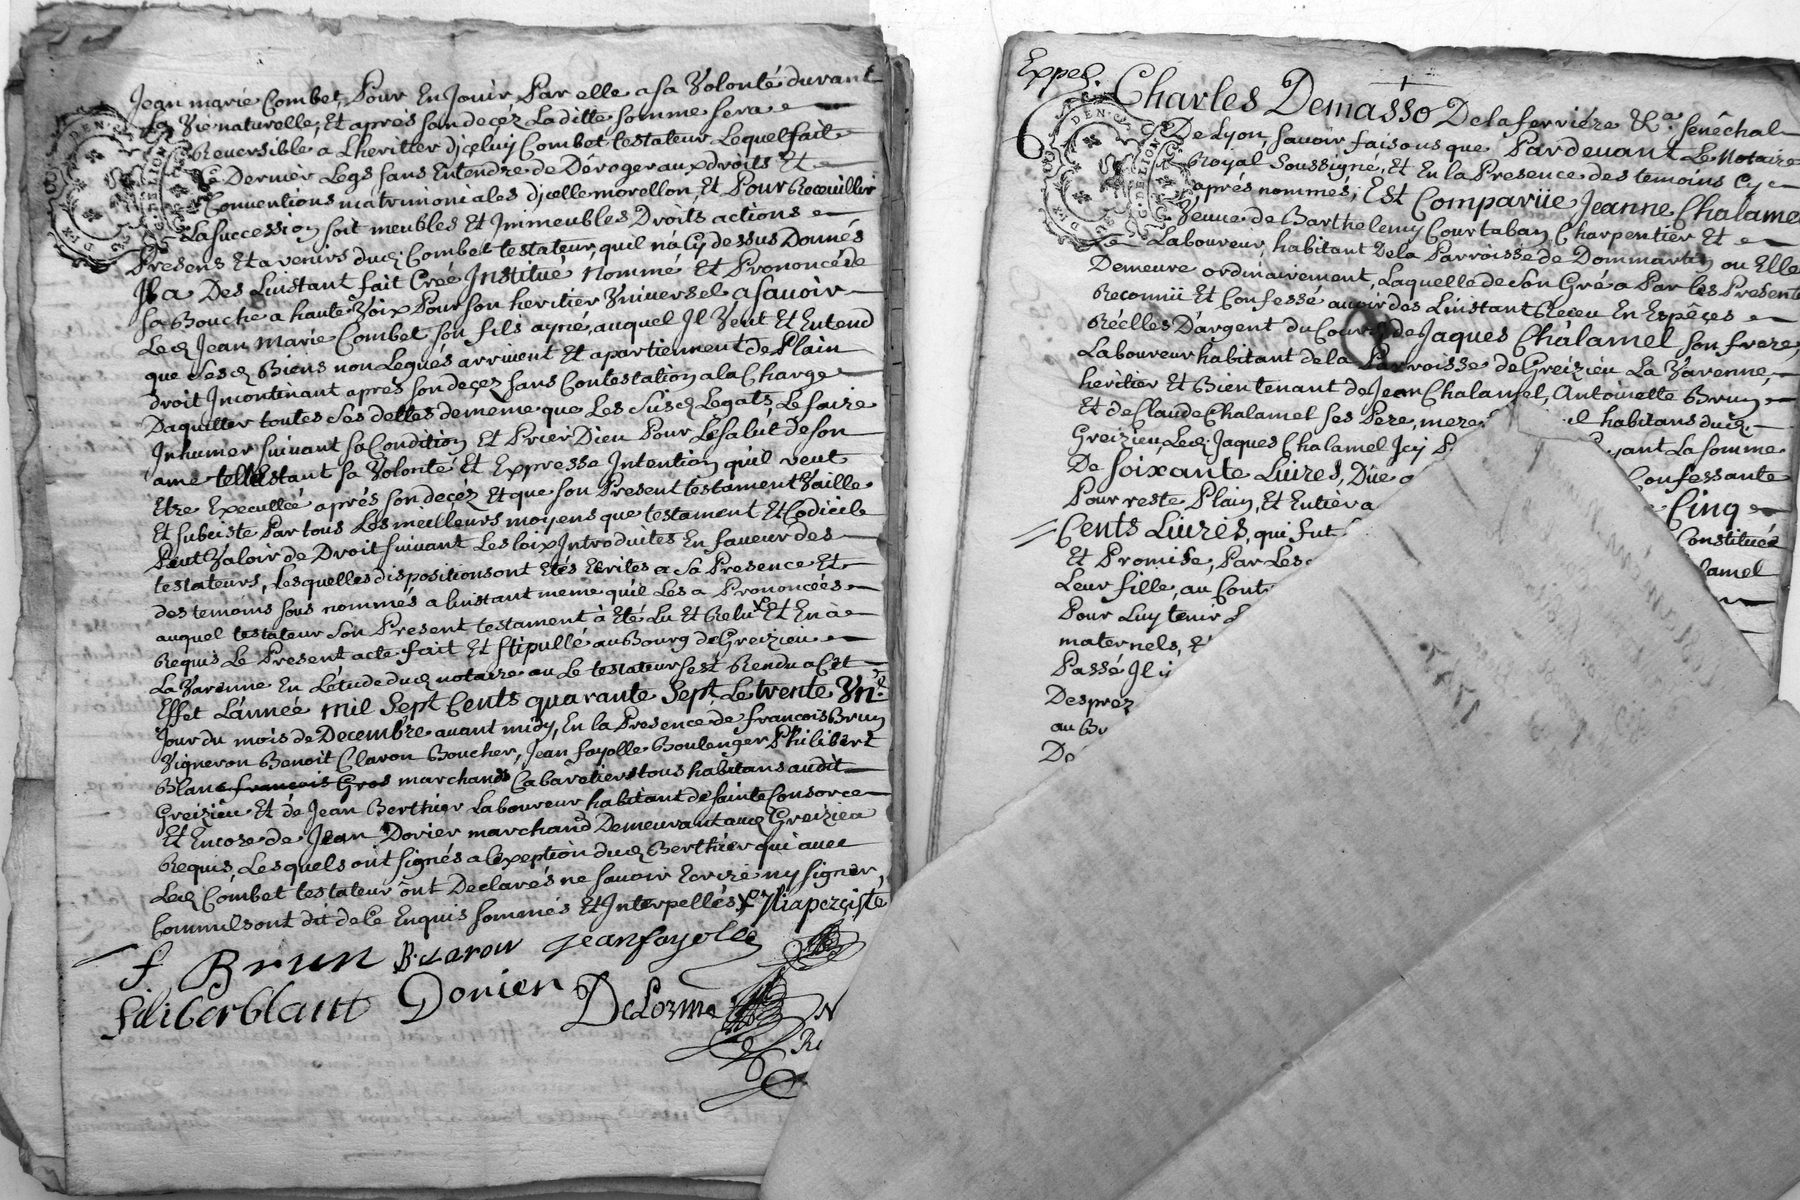 Jean marie Combet, Pour En Jouir Par elle a sa Volonté durant
sa Vie naturelle, Et apres son decéz La ditte somme sera
Reversible a Lheritier djceluy Combet testateur Lequel fait
Ce Dernier Legs sans Entendre de Déroger aux droits Et
Conventions matrimoniales djcelle morellon, Et Pour Receuillir
La succession soit meubles Et Immeubles Droits actions
Presens Et avenirs dud. Combet testateur, quil n'a Cy dessus Donnés
Il a Des Linstant fait Creé Institué Nommé Et Prononcé de
sa Bouche a haute Voix Pour son heritier Universel a savoir
Led. Jean Marie Combet son fils ayné, auquel Il Veut Et Entend
que ses d. Biens non Legués arrivent Et apartiennent de Plain
droit Incontinant aprés son decez sans Contestation a la Charge
Daquitter toutes ses dettes de meme que Les susd. Legats, Le faire
Inhumer suivant sa Condition Et Prier Dieu Pour Le salut de son
ame telle Estant sa Volonté Et Expresse Intention qu'il veut
Etre Executtée aprés son decéz Et que son Present testament Vaille
Et subciste Par tous Les meilleurs moyens que testament Et Codicile
Peut Valoir de Droit suivant Les loix Introduites En faveur des
testateurs, Lesquelles dispositions ont Etés Ecrites a Sa Presence Et
des temoins sous nommés a linstant meme qu'il Les a Prononcées
auquel testateur son Present testament à Eté Lu Et Relu Et En à
Requis Le Present acte fait Et stipullé au Bourg de Greizieu
La Varenne En Létude dud. notaire ou Le testateur s'est Rendu a Cet
Effet L'année mil sept Cents quarante sept Le trente Un.e
Jour du mois de Decembre avant midy, En la Presence de francois Brun
Vigneron Benoit Claron Boucher, Jean fayolle Boulenger Philibert
Blanc francois Gros marchands Cabaretiers tous habitans audit
Greizieu Et de Jean Berthier Laboureur habitant de sainte Consorce
Et Encore de Jean Dorier marchand Demeurant aud. Greizieu
Requis, Lesquels ont signés a L'exeption dud. Berthier qui avec
Led. Combet testateur ônt Declarés ne savoir Ecrire ny signer,
Comm'ils ont dit de Ce Enquis sommés Et Interpellés
f. Brun B. claron jean fayolle
filiberblant Dorier DeLorme
Expéd.
Charles Demasso De la ferriére &c.a Senêchal
De Lyon savoir faisons que Pardevant Le Notaire
Royal Soussigné, Et En la Presence des temoins Cy
aprés nommés, Est Comparüe Jeanne Chalamel
Veuve de Barthelemy Courtaban Charpentier Et
Laboureur, habitant De la Parroisse de Dommartin ou Elle
Demeure ordinairement, Laquelle de son Gré a Par les Presentes
Reconnü Et Confessé avoir des Linstant Receu En Espêçes
Réelles D'argent du Cours, de Jaques Châlamel son frere,
Laboureur habitant de la Parroisse de Greizieu La Varenne,
heritier Et Bientenant de Jean Chalamel, Antoinette Brun
Et de Claude Chalamel ses Pere, mere habitans dud.
Greizieu, Led. Jaques Chalamel Icy La somme
De soixante Livres, Düe Confessante
Pour reste Plain, Et Entier a Cinq
Cents Livres, qui fut Constituée
Et Promise, Par Les
Leur fille, au
Pour Luy tenir
maternels,
Passé Il